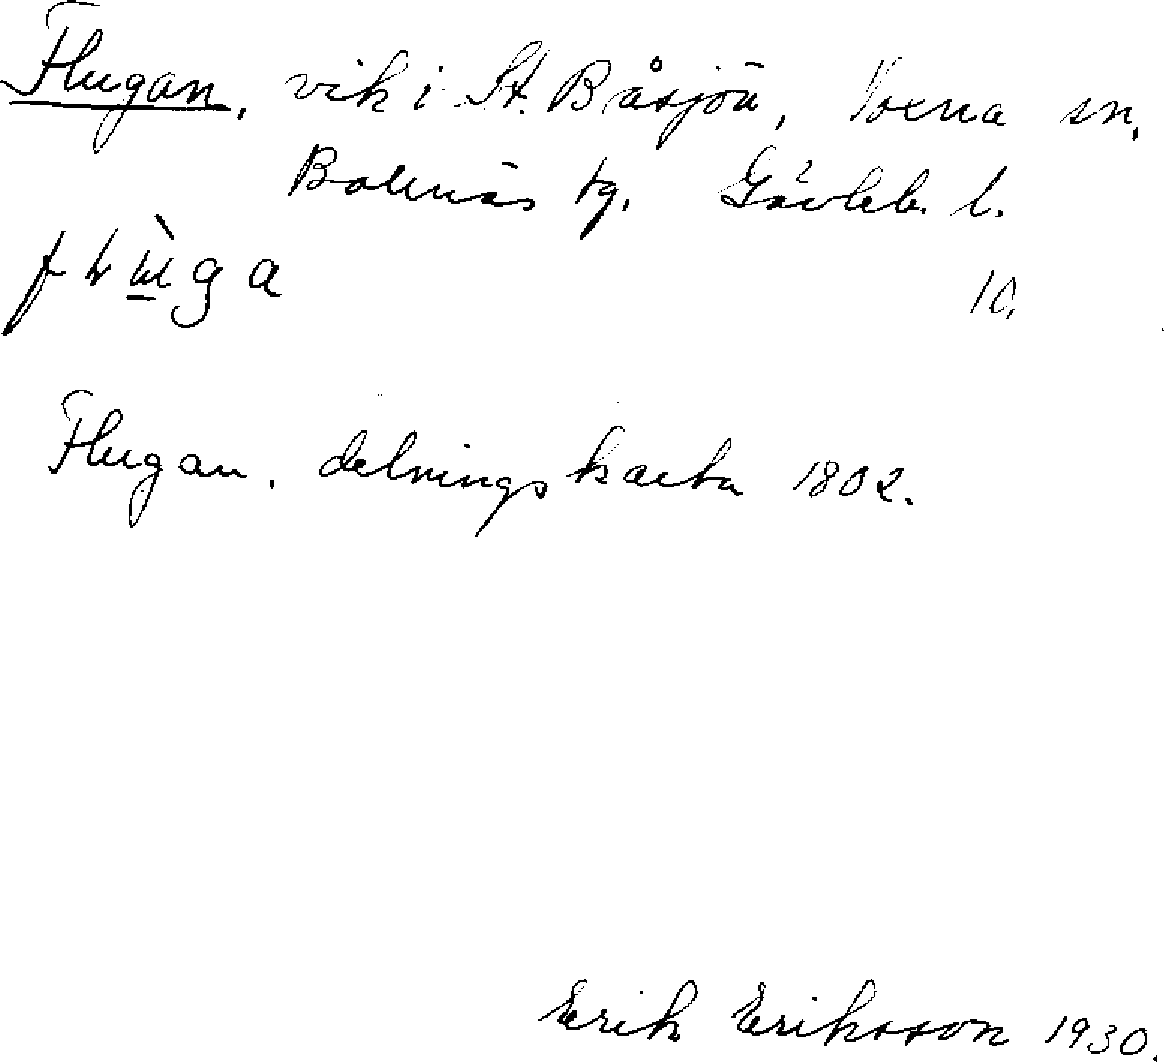 Flugan, vik i St. Båsjön, Voxna sn,
Bollnäs tg. Gävleb. l.
10.
Flugan, delningskarta 1802.
Erik Eriksson 1930.